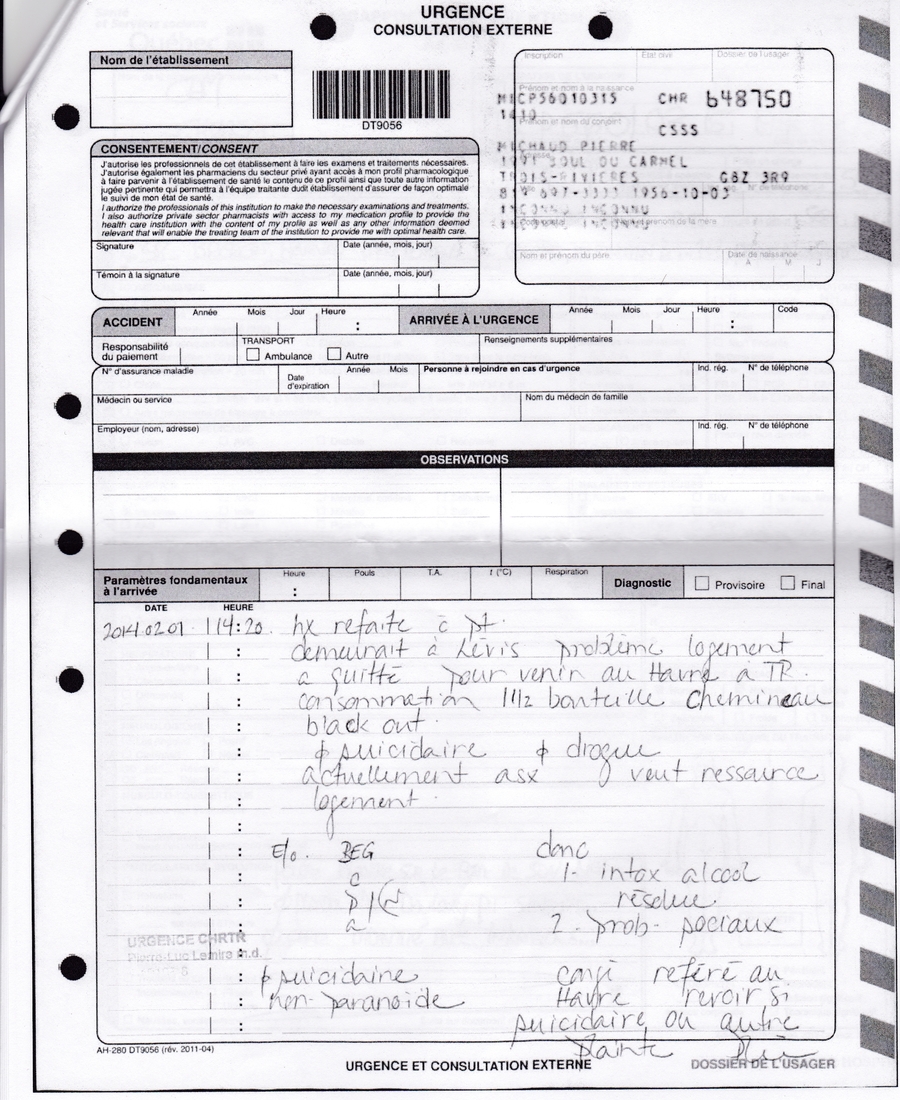 URGENCE
CONSULTATION EXTERNE
Nom de l'établissement
DT9056
Inscription État civil Dossier de l'usager
Prénom et nom à la naissance
MICP56010315 CHR 648750
1410
Prénom et nom du conjoint
CSSS
MICHAUD PIERRE
BOUL DU CARMEL
TROIS-RIVIERES G8Z 3R9
1956-10-03
INCONNU INCONNU
INCONNU
Nom et prénom du père Date de naissance
A M J
CONSENTEMENT/CONSENT
J'autorise les professionnels de cet établissement à faire les examens et traitements nécessaires.
J'autorise également les pharmaciens du secteur privé ayant accès à mon profil pharmacologique
à faire parvenir à l'établissement de santé le contenu de ce profil ainsi que toute autre information
jugée pertinente qui permettra à l'équipe traitante dudit établissement d'assurer de façon optimale
le suivi de mon état de santé.
I authorize the professionals of this institution to make the necessary examinations and treatments.
I also authorize private sector pharmacists with access to my medication profile to provide the
health care institution with the content of my profile as well as any other information deemed
relevant that will enable the treating team of the institution to provide me with optimal health care.
Signature Date (année, mois, jour)
Témoin à la signature Date (année, mois, jour)
ACCIDENT Année Mois Jour Heure : ARRIVÉE À L'URGENCE Année Mois Jour Heure : Code
Responsabilité du paiement TRANSPORT Ambulance Autre Renseignements supplémentaires
N° d'assurance maladie Date d'expiration Année Mois Personne à rejoindre en cas d'urgence Ind. rég. N° de téléphone
Médecin ou service Nom du médecin de famille
Employeur (nom, adresse) Ind. rég. N° de téléphone
OBSERVATIONS
Paramètres fondamentaux à l'arrivée Heure : Pouls T.A. t (°C) Respiration Diagnostic Provisoire Final
DATE HEURE
2014.02.01 14:20 hx refaite c̄ pt.
demeurait à Lévis problème logement
a quitté pour venir au Havre à TR.
consommation 1 1/2 bouteille chemineau
black out.
φ suicidaire φ drogue
actuellement asx veut ressource
logement.
E/o. BEG donc
C 1- intox alcool
P résolue.
A 2. prob- sociaux
URGENCE CHRTR
Pierre-Luc Lemire m.d.
φ suicidaire congé référé au
non-paranoïde Havre revoir si
suicidaire ou autre
plainte
AH-280 DT9056 (rév. 2011-04)
URGENCE ET CONSULTATION EXTERNE
DOSSIER DE L'USAGER